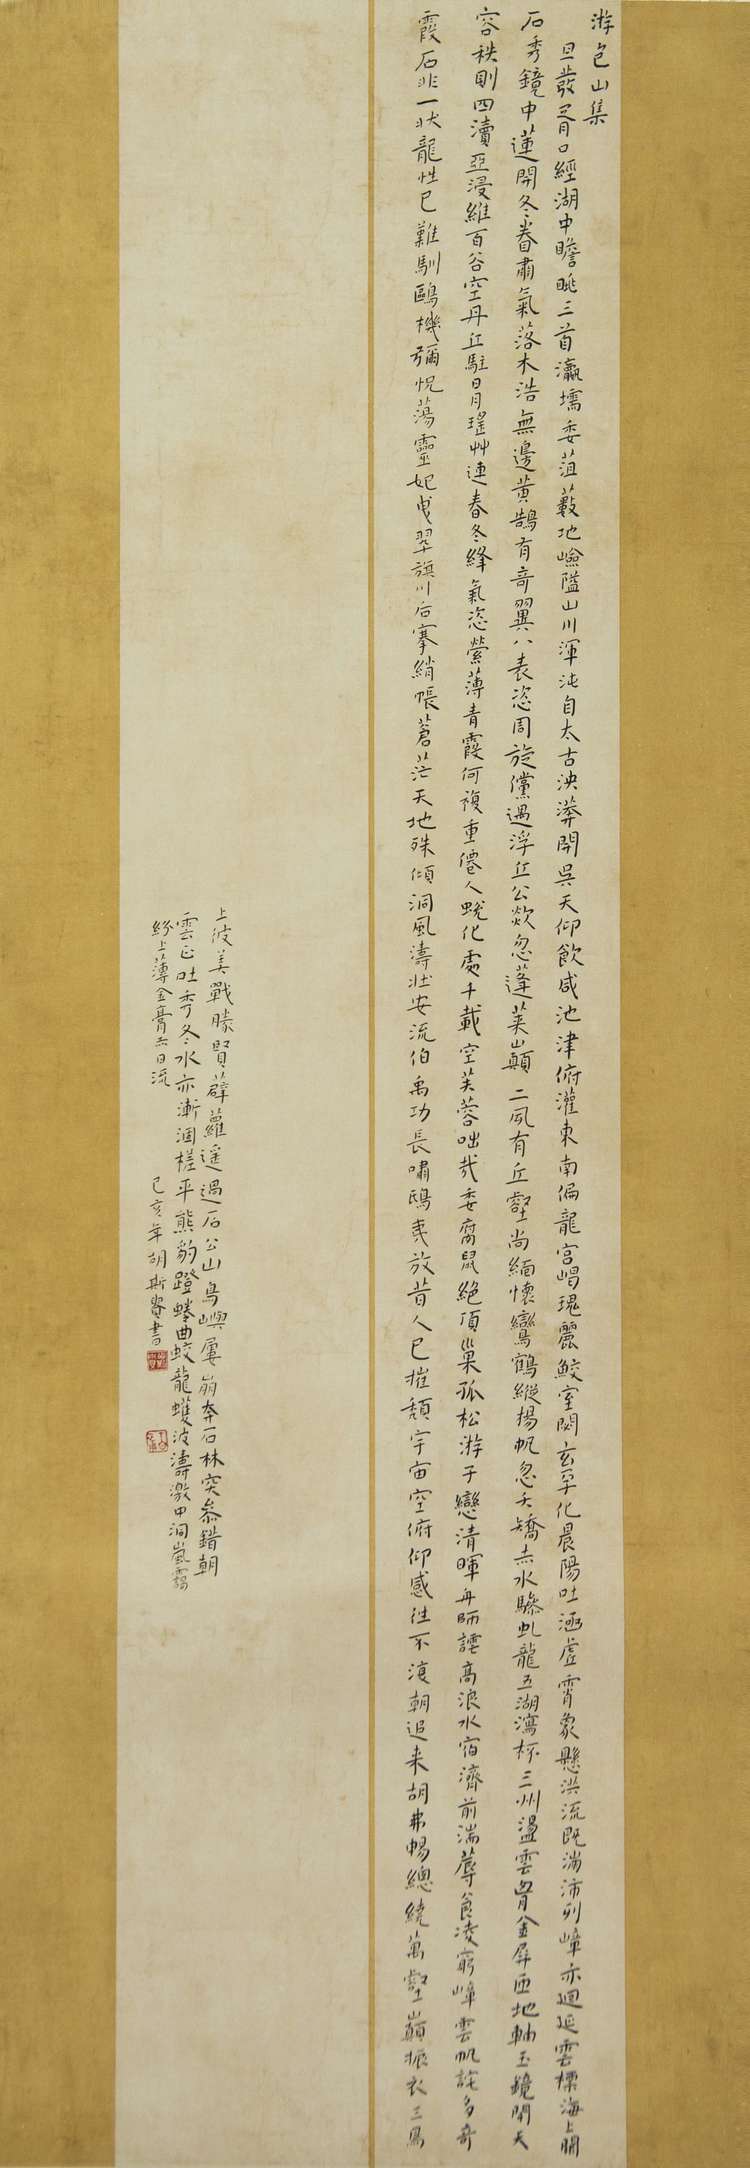 游包山集
旦發胥口經湖中瞻眺三首瀛壖委菹藪地嶮隘山川渾沌自太古泱漭開吳天仰飲咸池津俯灌東南偏龍宮唱瑰麗鮫室閟玄孚化晨陽吐涵虛霄象懸洪流既湍沛列嶂亦迴延雲標海上開
石秀鏡中蓮開冬眷肅氣落木浩無邊黃鵠有奇翼八表恣周旋儻遇浮丘公欻忽蓬萊巔二夙有丘壑尚緬懷鸞鶴縱揚帆忽夭矯赤水驂虬龍五湖瀉杯三州盪雲胷金屏匝地軸玉鏡開天
容秩則四瀆亞浸維百谷空丹丘駐日月瑤艸連春冬絳氣恣縈薄青霞何複重僊人蛻化處千載空芙蓉咄哉委腐鼠絕頂巢孤松游子戀清暉舟師諈高浪水宿濟前湍蓐食凌窮嶂雲帆詫多奇
霞石非一狀龍性已難馴鷗機彌怳蕩靈妃曳翠旗川后搴綃帳蒼茫天地殊傾洞風濤壯安流伯禹功長嘯鴟夷放昔人已摧頹宇宙空俯仰感往不復朝追來胡弗暢總繞萬壑巔振衣三鳥
上彼美戰勝賢薜蘿遥過石公山鳥嶼屢崩奔石林突參錯朝
雲正吐秀冬水亦漸涸槎平熊豹蹬蜷曲蛟龍蠖波濤激中洞嵐靄
紛上薄金膏亦日流
己亥年胡斯賚書